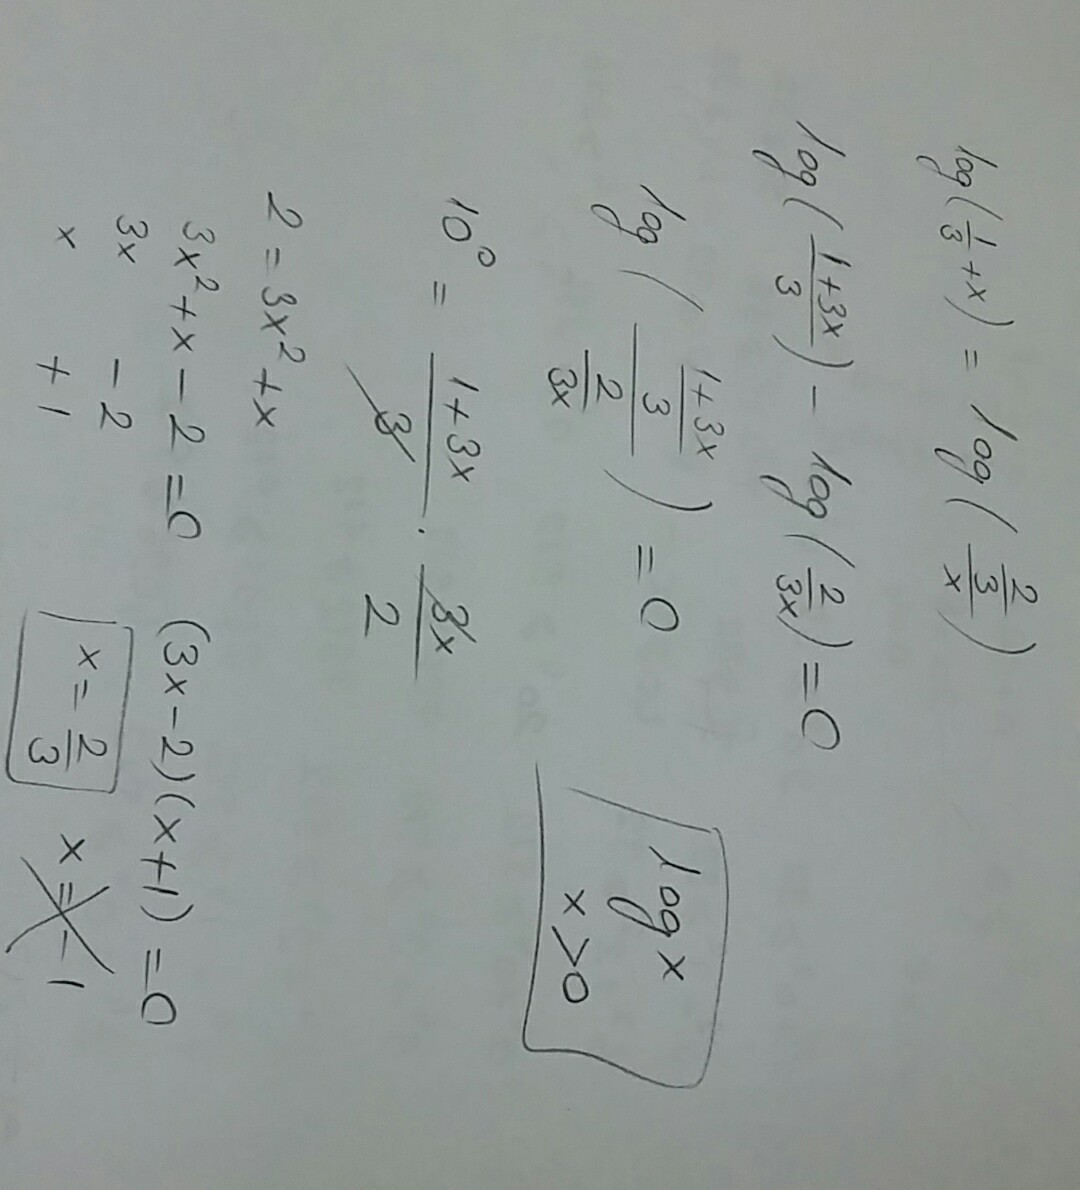 log(1/3 + x) = log((2/3)/x)
log((1+3x)/3) - log(2/3x) = 0
log(((1+3x)/3)/(2/3x)) = 0
log x
x>0
10⁰ = (1+3x)/3 · 3x/2
2 = 3x² + x
3x² + x - 2 = 0 (3x-2)(x+1) = 0
3x -2
x +1
x = 2/3 x = -1